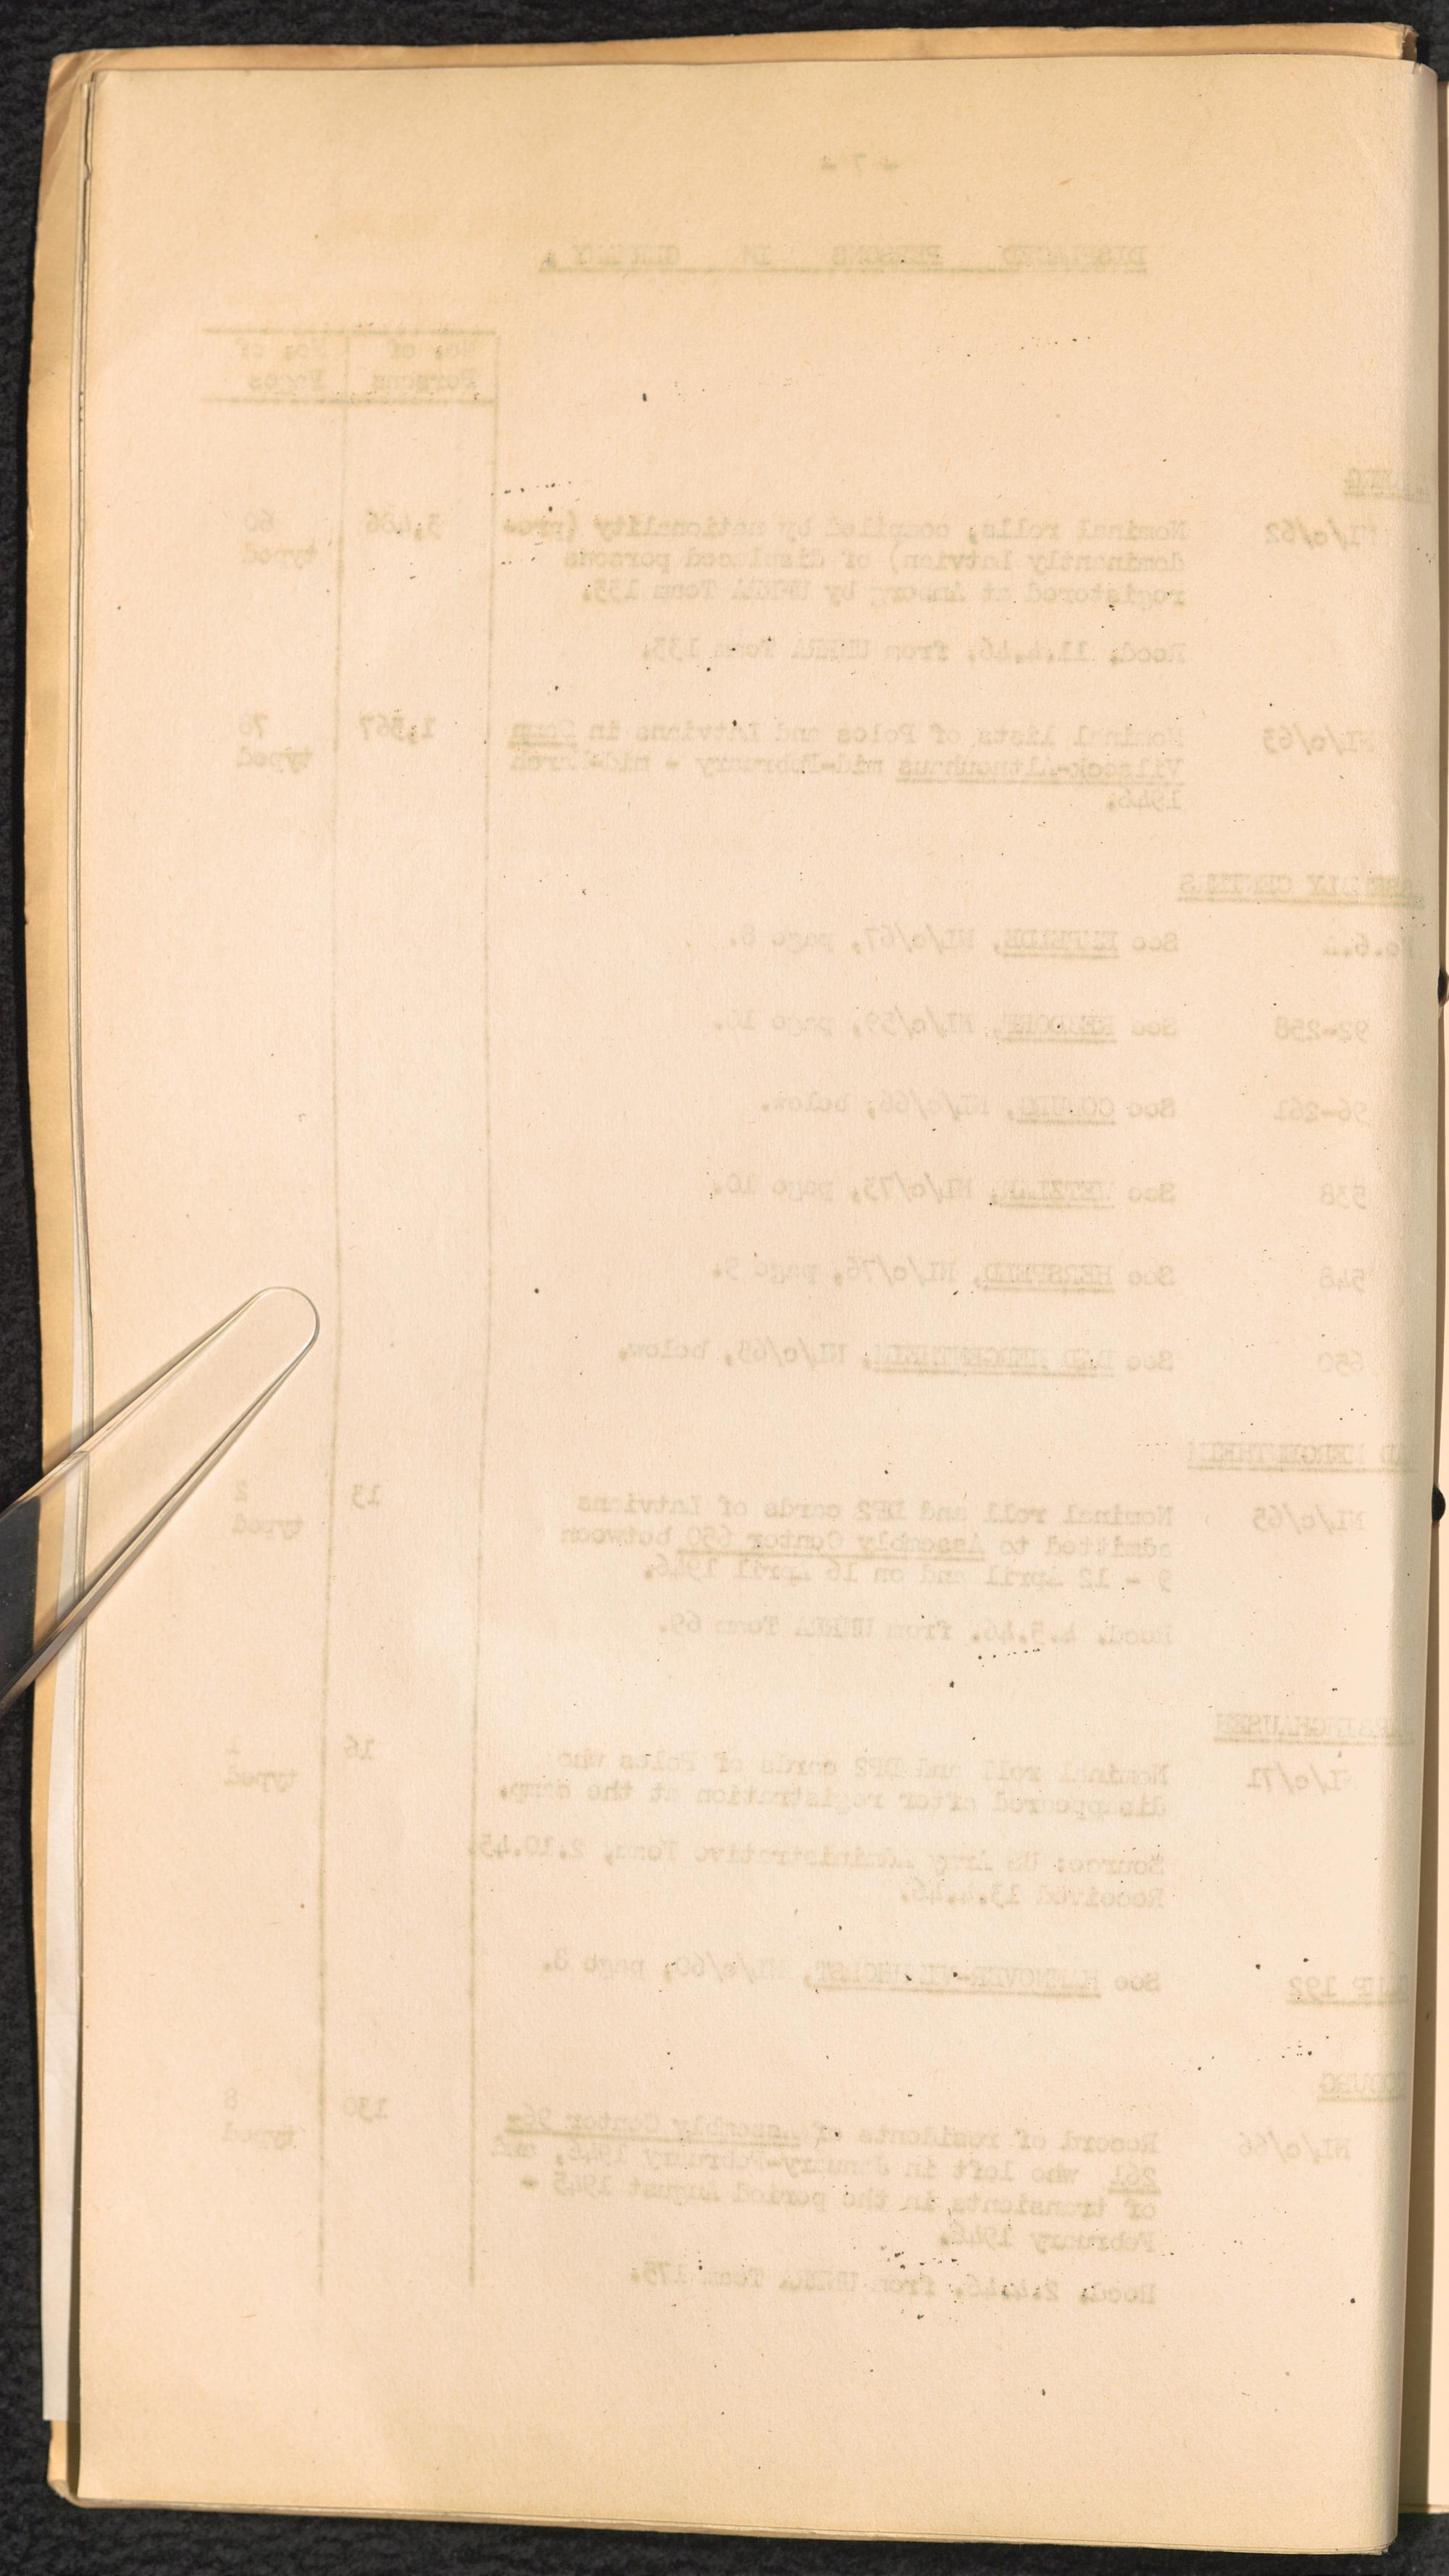 - 7 -
DISPLACED PERSONS IN GERMANY.
No. of Persons No. of Pages
NI/c/62 Nominal rolls, compiled by nationality (pre- 3,486 60
dominantly Latvian) of displaced persons typed
registered at Amberg by UNRRA Team 133.
Recd. 11.4.46. from UNRRA Team 133.
NI/c/63 Nominal lists of Poles and Latvians in Camp 1,367
Vilseck-Altneuhaus mid-February - mid-March typed
1946.
ASSEMBLY CENTERS
See NI/c/67, page 8.
92-258 See REBDORF, NI/c/59, page 10.
96-261 See COBURG, NI/c/66, below.
538 See WETZLAR, NI/c/73, page 10.
548 See HERSFELD, NI/c/76, page 9.
650 See BAD MERGENTHEIM, below.
BAD MERGENTHEIM
NI/c/65 Nominal roll and DP2 cards of Latvians 13 2
admitted to Assembly Center 650 between typed
9 - 12 April and on 16 April 1946.
Recd. 4.5.46. from UNRRA Team 69.
BARSINGHAUSEN
NI/c/71 Nominal roll and DP2 cards of Balts who 16 1
disappeared after registration at the camp. typed
Source: US Army Administrative Team, 2.10.45.
Received 13.4.46.
CAMP 192 See page 8.
COBURG
NI/c/66 Record of residents of Assembly Center 96- 130 8
261 who left in January-February 1946, and typed
of transients in the period August 1945 -
February 1946.
Recd. 2.4.46. from UNRRA Team 175.